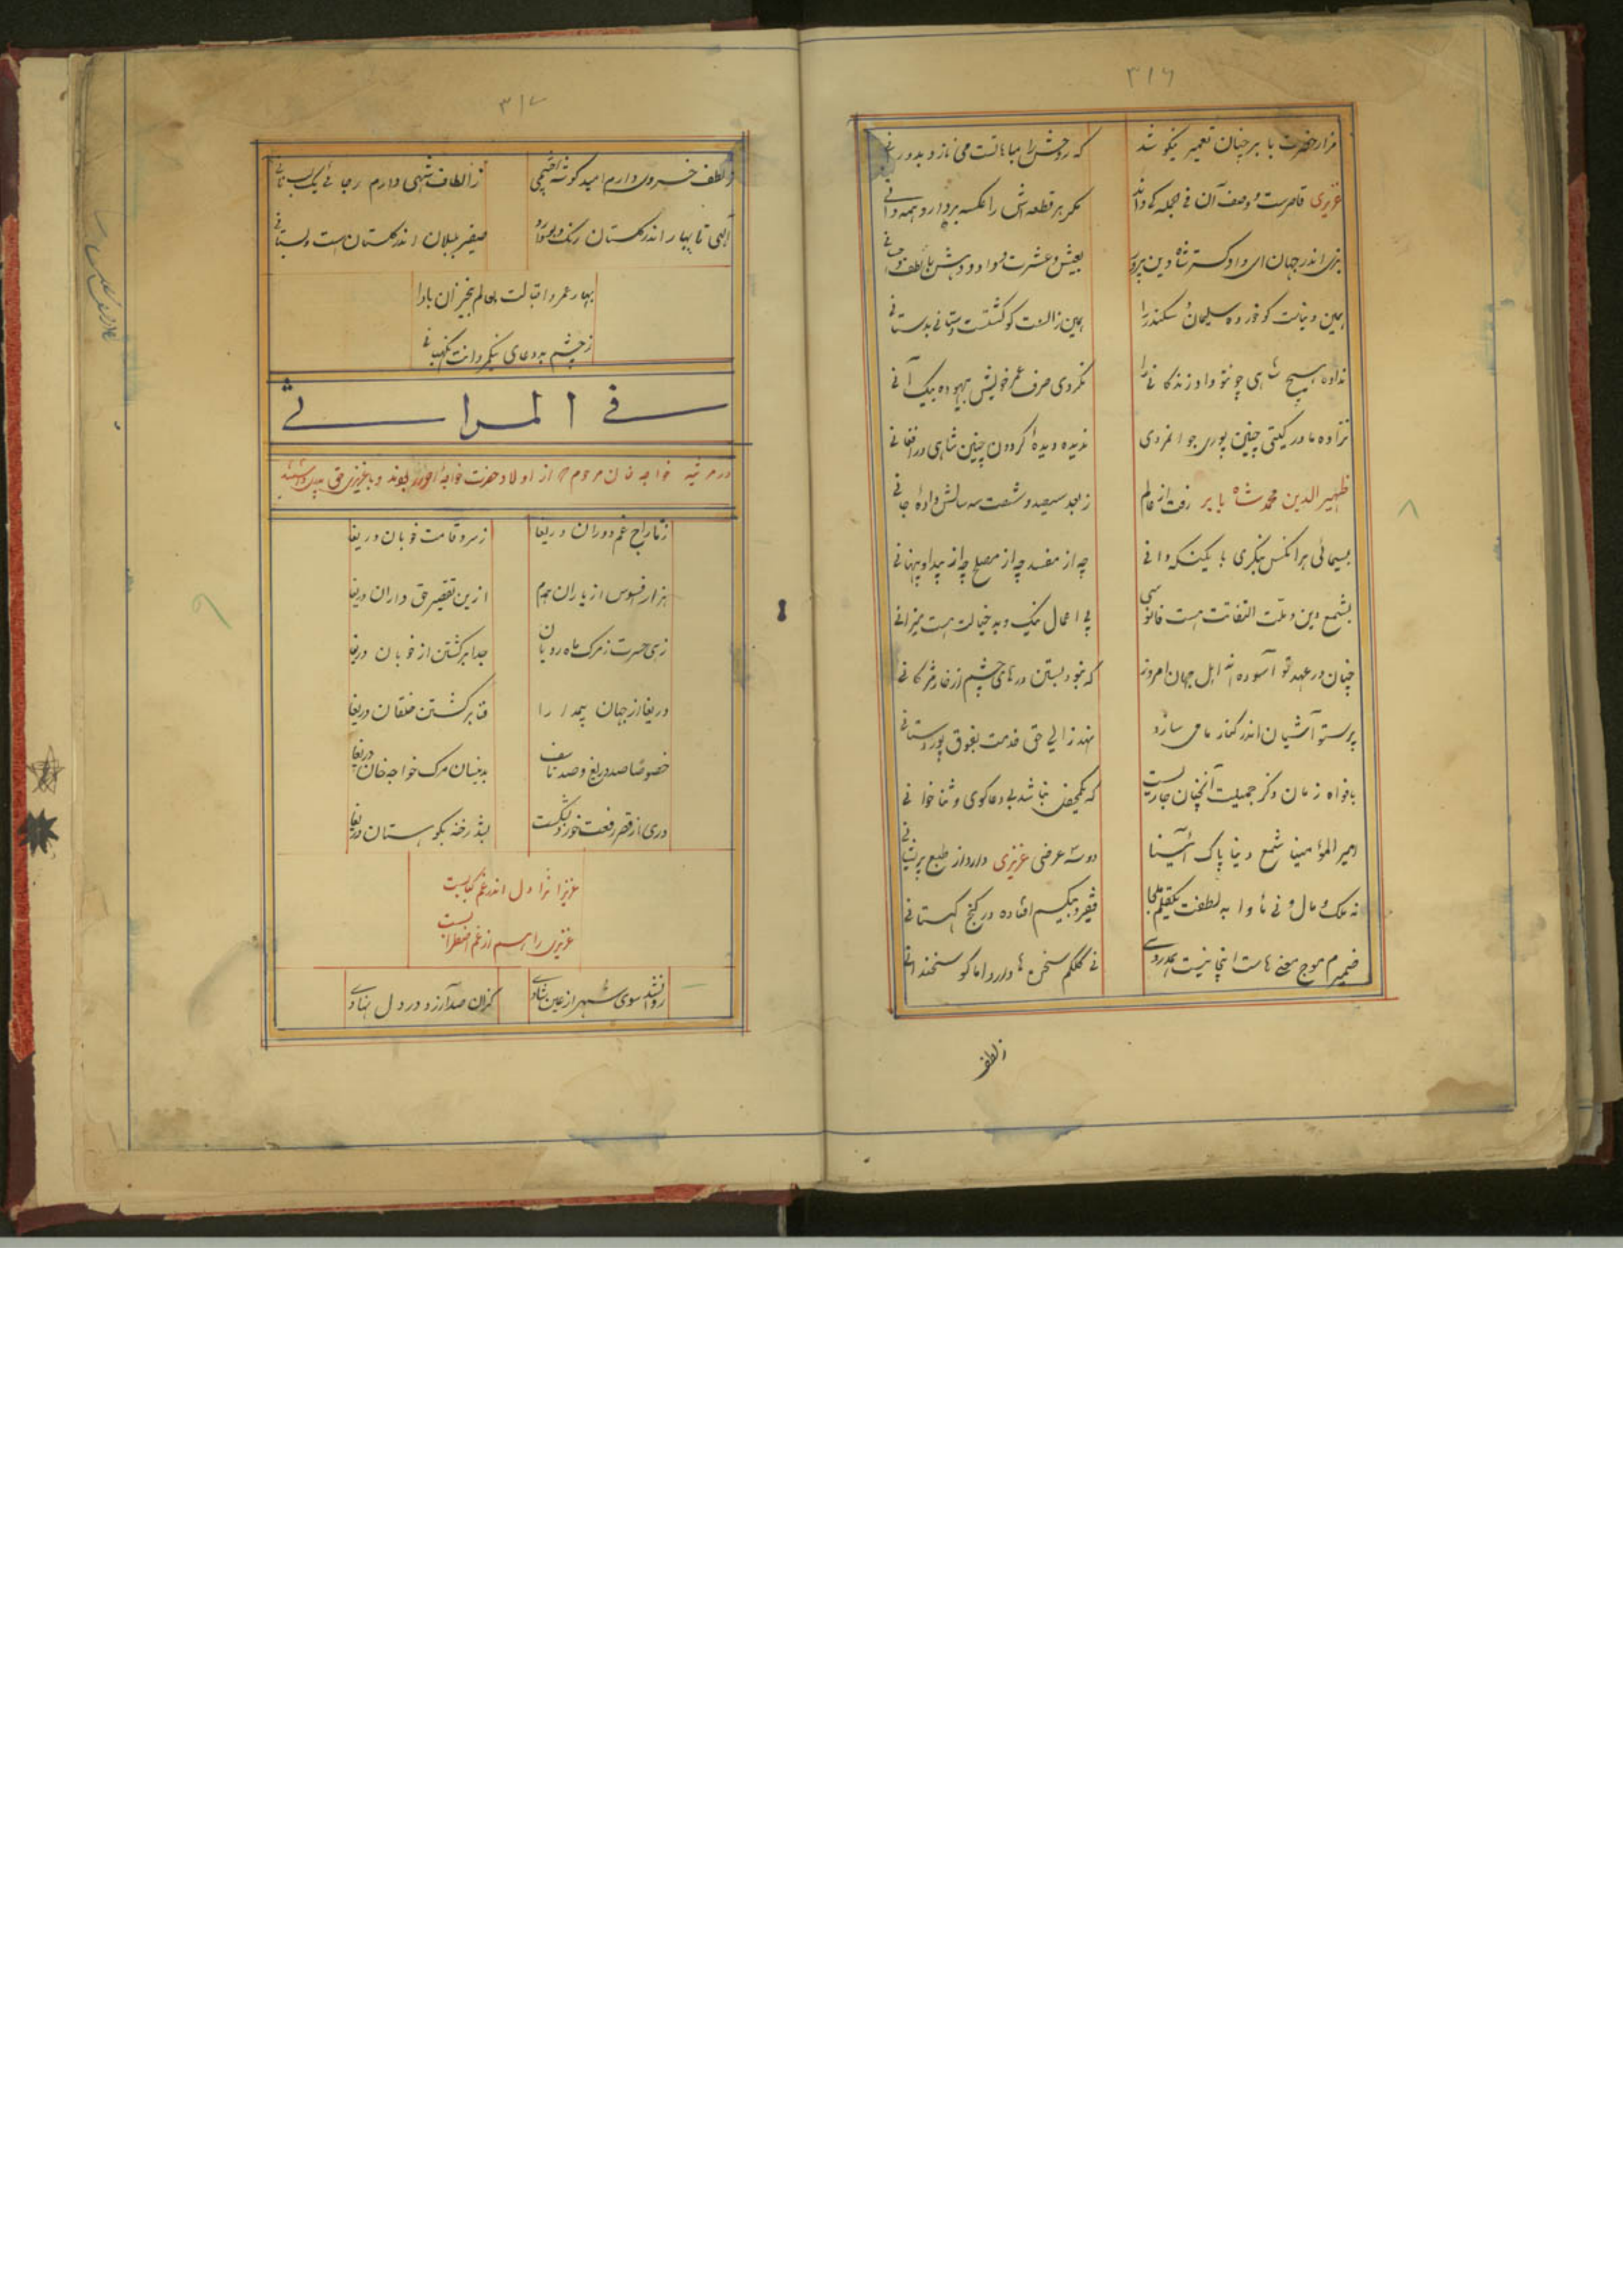 ۳۱۶
مزار حضرت بابر چنان تعمیر نیکو شد
که روحش را مباهات می نازد بدورانی
عزیزی قاصرست و وصف آن فی الجمله کی داند
مگر هر قطعه اش را
بزی اندر جهان ای دادگستر شاه دین پرور
بعیش و عشرت و داد و دهش با لطف
همین دنیاست کو خورده سلیمان و سکندر را
همین زالست کو کشتست دستانی بدستانی
نداده هیچ شاهی چونتو داد زندگانی را
نکردی صرف عمر خویش بیهوده بیک آنی
نزاده مادر گیتی چنین پوری جوانمردی
ندیده دیدهٔ گردون چنین شاهی در افغانی
ظهیرالدین محمد شاه بابر رفت از عالم
ز بعد سیصد و شصت سه سالش دادهٔ جانی
بسیمائی هر آنکس بنگری با نیک و بد دانی
چه از مفسد چه از مصلح چه از پیدا و پنهانی
بشمع دین و ملت التفاتت هست فانوسی
پی اعمال نیک و بد خیالت هست میزانی
چنان در عهد تو آسوده اند اهل جهان امروز
که نبود بستن درهای چشم از خار مژگانی
پرستو آشیان اندر کنار ما می سازد
نهد زالی حق خدمت بفوق پور دستانی
بافواه زمان ذکر جمیلت آنچنان جاریست
که یک محفل نباشد بی دعاگوی و ثنا خوانی
امیر المؤمنینا شمع دینا پاک آئینا
دو سه عرضی عزیزی دارد از طبع پریشانی
نه ملک و مال و نی مأوا به لطفت یکقلم ملجا
فقیر و بیکسم افتاده در کنج کهستانی
ضمیرم موج معنی هاست اینجا نیست همدردی
نی کلکم سخن ها دارد اما کو سخندانی
ز لطف
۳۱۷
ز لطف خسروی دارم امید گوشه چشمی
ز الطاف شهی دارم رجائی یک لب نانی
الهی تا بهار اندر گلستان رنگ و بو دارد
صفیر بلبلان اندر گلستان هست دلستانی
بهار عمر و اقبالت بعالم بیخزان بادا
ز چشم بد دعای نیکمردانت نگهبانی
فی المراثی
در مرثیه خواجه خان مرحوم که از اولاد حضرت خواجه احرار بودند و با عزیزی حق
ز تاراج غم دوران دریغا
ز سرو قامت خوبان دریغا
هزار افسوس از یاران همدم
ازین تقصیر حق داران دریغا
زهی حسرت ز مرگ ماه رویان
جدا برگشتن از خوبان دریغا
دریغا از جهان بیمدارا
فنا برگشتن خلقان دریغا
خصوصا صد دریغ و صد تأسف
بدینسان مرگ خواجه خان دریغا
دری از قصر رفعت خورد بشکست
بشد رخنه بکوهستان دریغا
عزیزا ترا دل اندر غم کبابست
عزیزی را هم از غم اضطرابست
روان شد سوی شهر از عین شادی
کزان صد آرزو در دل نهادی